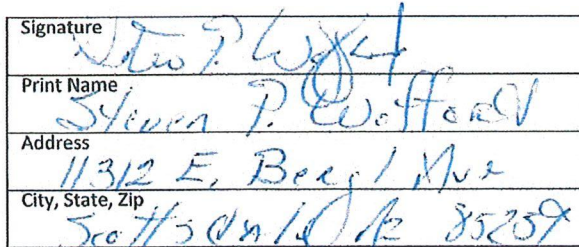 Signature
Steven P. Wofford
Print Name
Steven P. Wofford
Address
11312 E. Beryl Ave
City, State, Zip
Scottsdale Az 85259